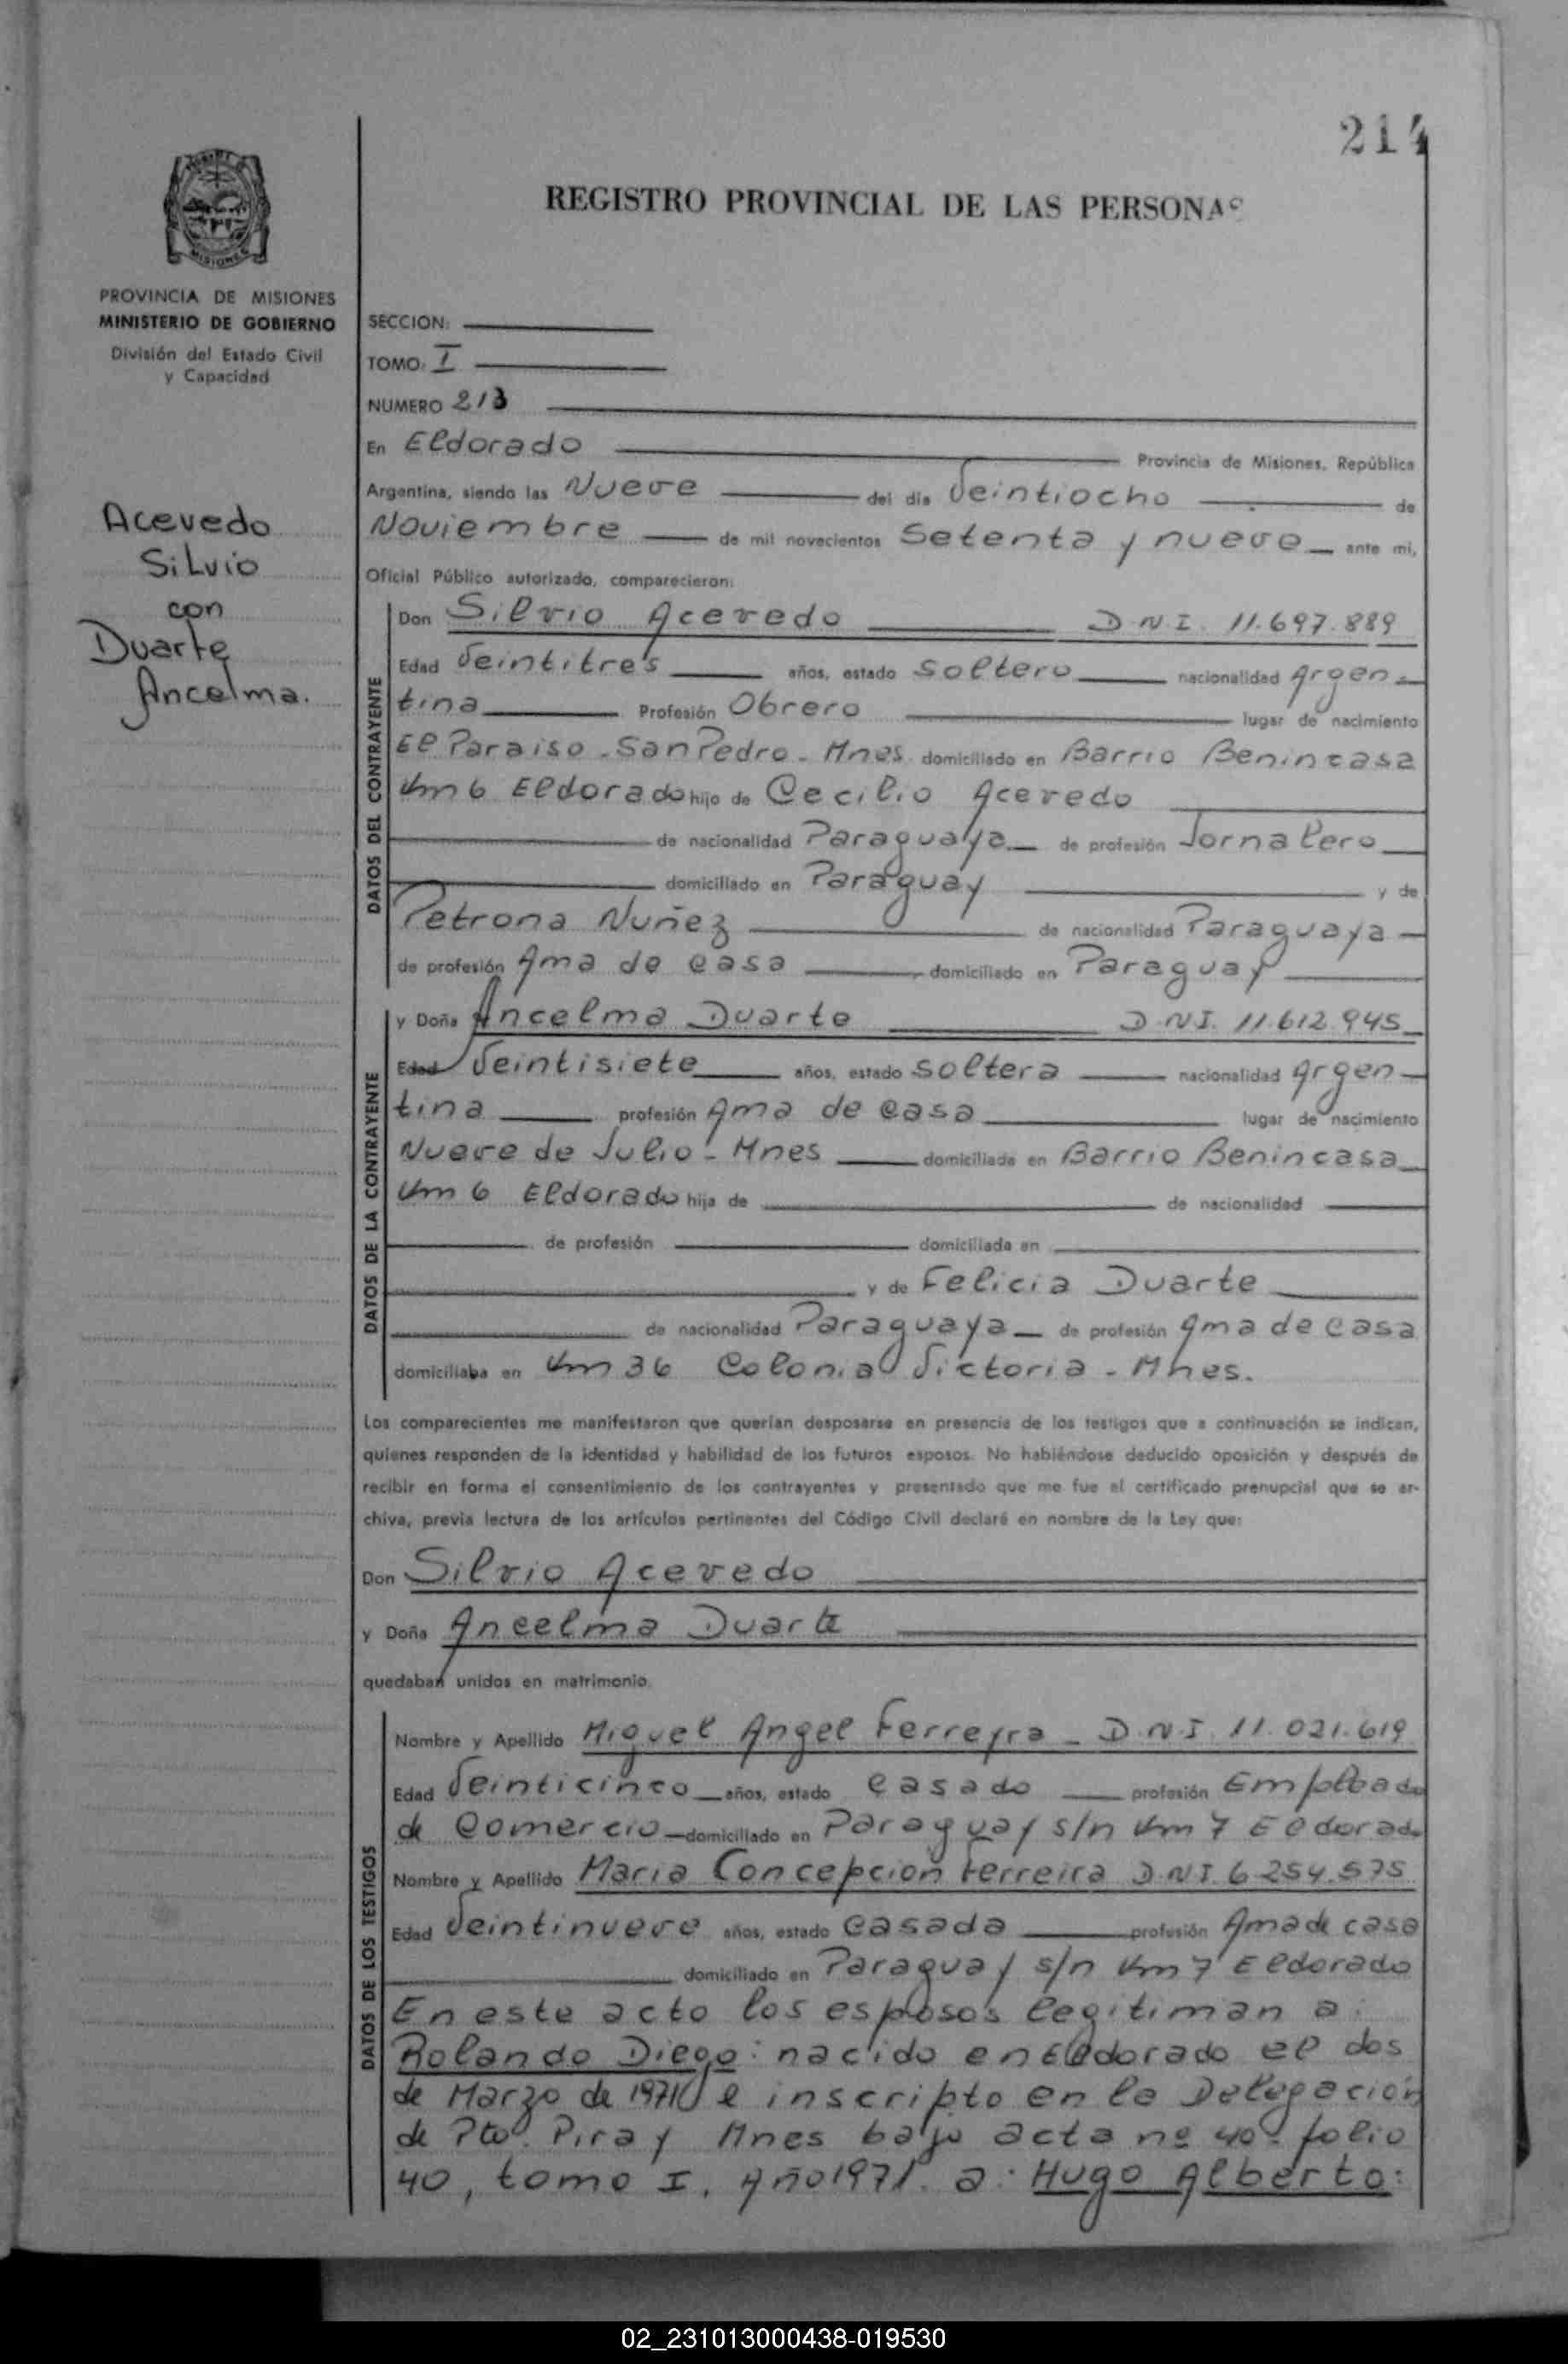 214
REGISTRO PROVINCIAL DE LAS PERSONAS
MISIONES
PROVINCIA DE MISIONES
MINISTERIO DE GOBIERNO
División del Estado Civil
y Capacidad
Acevedo
Silvio
con
Duarte
Ancelma.
SECCION:
TOMO: I
NUMERO 213
En Eldorado Provincia de Misiones, República
Argentina, siendo las Nueve del día Veintiocho de
Noviembre de mil novecientos Setenta y nueve ante mi,
Oficial Público autorizado, comparecieron:
DATOS DEL CONTRAYENTE
Don Silvio Acevedo D.N.I. 11.697.889
Edad Veintitres años, estado soltero nacionalidad Argen-
tina Profesión Obrero lugar de nacimiento
El Paraiso - San Pedro - Mnes. domiciliado en Barrio Benincasa
Km 6 Eldorado hijo de Cecilio Acevedo
de nacionalidad Paraguaya de profesión Jornalero
domiciliado en Paraguay y de
Petrona Nuñez de nacionalidad Paraguaya
de profesión Ama de casa domiciliado en Paraguay
DATOS DE LA CONTRAYENTE
y Doña Ancelma Duarte D.N.I. 11.612.945
Edad Veintisiete años, estado soltera nacionalidad Argen-
tina profesión Ama de casa lugar de nacimiento
Nueve de Julio - Mnes domiciliada en Barrio Benincasa
Km 6 Eldorado hija de de nacionalidad
de profesión domiciliada en
y de Felicia Duarte
de nacionalidad Paraguaya de profesión Ama de casa
domiciliaba en Km 36 Colonia Victoria - Mnes.
Los comparecientes me manifestaron que querían desposarse en presencia de los testigos que a continuación se indican,
quienes responden de la identidad y habilidad de los futuros esposos. No habiéndose deducido oposición y después de
recibir en forma el consentimiento de los contrayentes y presentado que me fue el certificado prenupcial que se ar-
chiva, previa lectura de los artículos pertinentes del Código Civil declaré en nombre de la Ley que:
Don Silvio Acevedo
y Doña Ancelma Duarte
quedaban unidos en matrimonio.
DATOS DE LOS TESTIGOS
Nombre y Apellido Miguel Angel Ferreyra - D.N.I. 11.021.619
Edad Veinticinco años, estado casado profesión Empleado
de Comercio domiciliado en Paraguay s/n Km 7 Eldorado
Nombre y Apellido Maria Concepcion Ferreira D.N.I. 6.254.575
Edad Veintinueve años, estado casada profesión Ama de casa
domiciliado en Paraguay s/n Km 7 Eldorado
En este acto los esposos legitiman a:
Rolando Diego: nacido en Eldorado el dos
de Marzo de 1971 e inscripto en la Delegación
de Pto. Piray Mnes bajo acta nº 40 - folio
40, tomo I, Año 1971. a: Hugo Alberto:
02_231013000438-019530